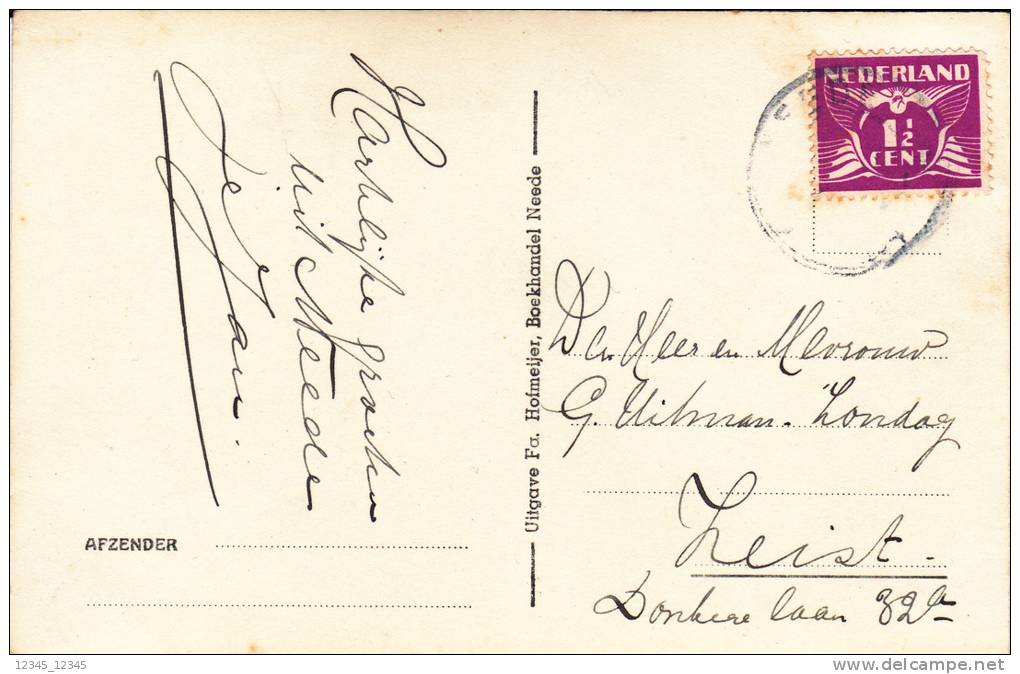 Hartelijke groeten
uit Neede
de Jan.
AFZENDER
Uitgave Fa. Hofmeijer, Boekhandel Neede
NEDERLAND
1½
CENT
Den Heer en Mevrouw
G. Uitman-Zondag
Zeist-
Donkere laan 32a
12345_12345
delcampe.net